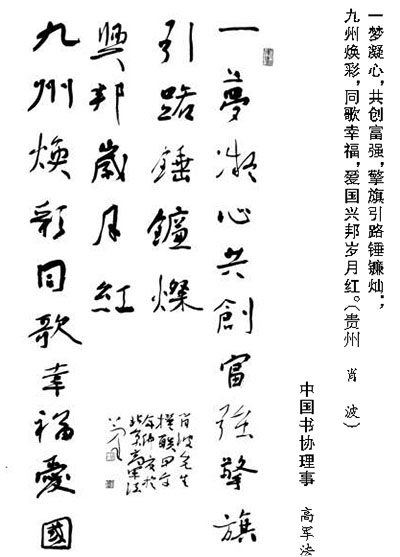 一梦凝心，共创富强，擎旗引路锤镰灿；
九州焕彩，同歌幸福，爱国兴邦岁月红。（贵州 肖 波）
中国书协理事 高军法
一夢凝心共創富強擎旗
引路錘鐮燦
九州煥彩同歌幸福愛國
興邦歲月紅
肖波先生
撰联甲午